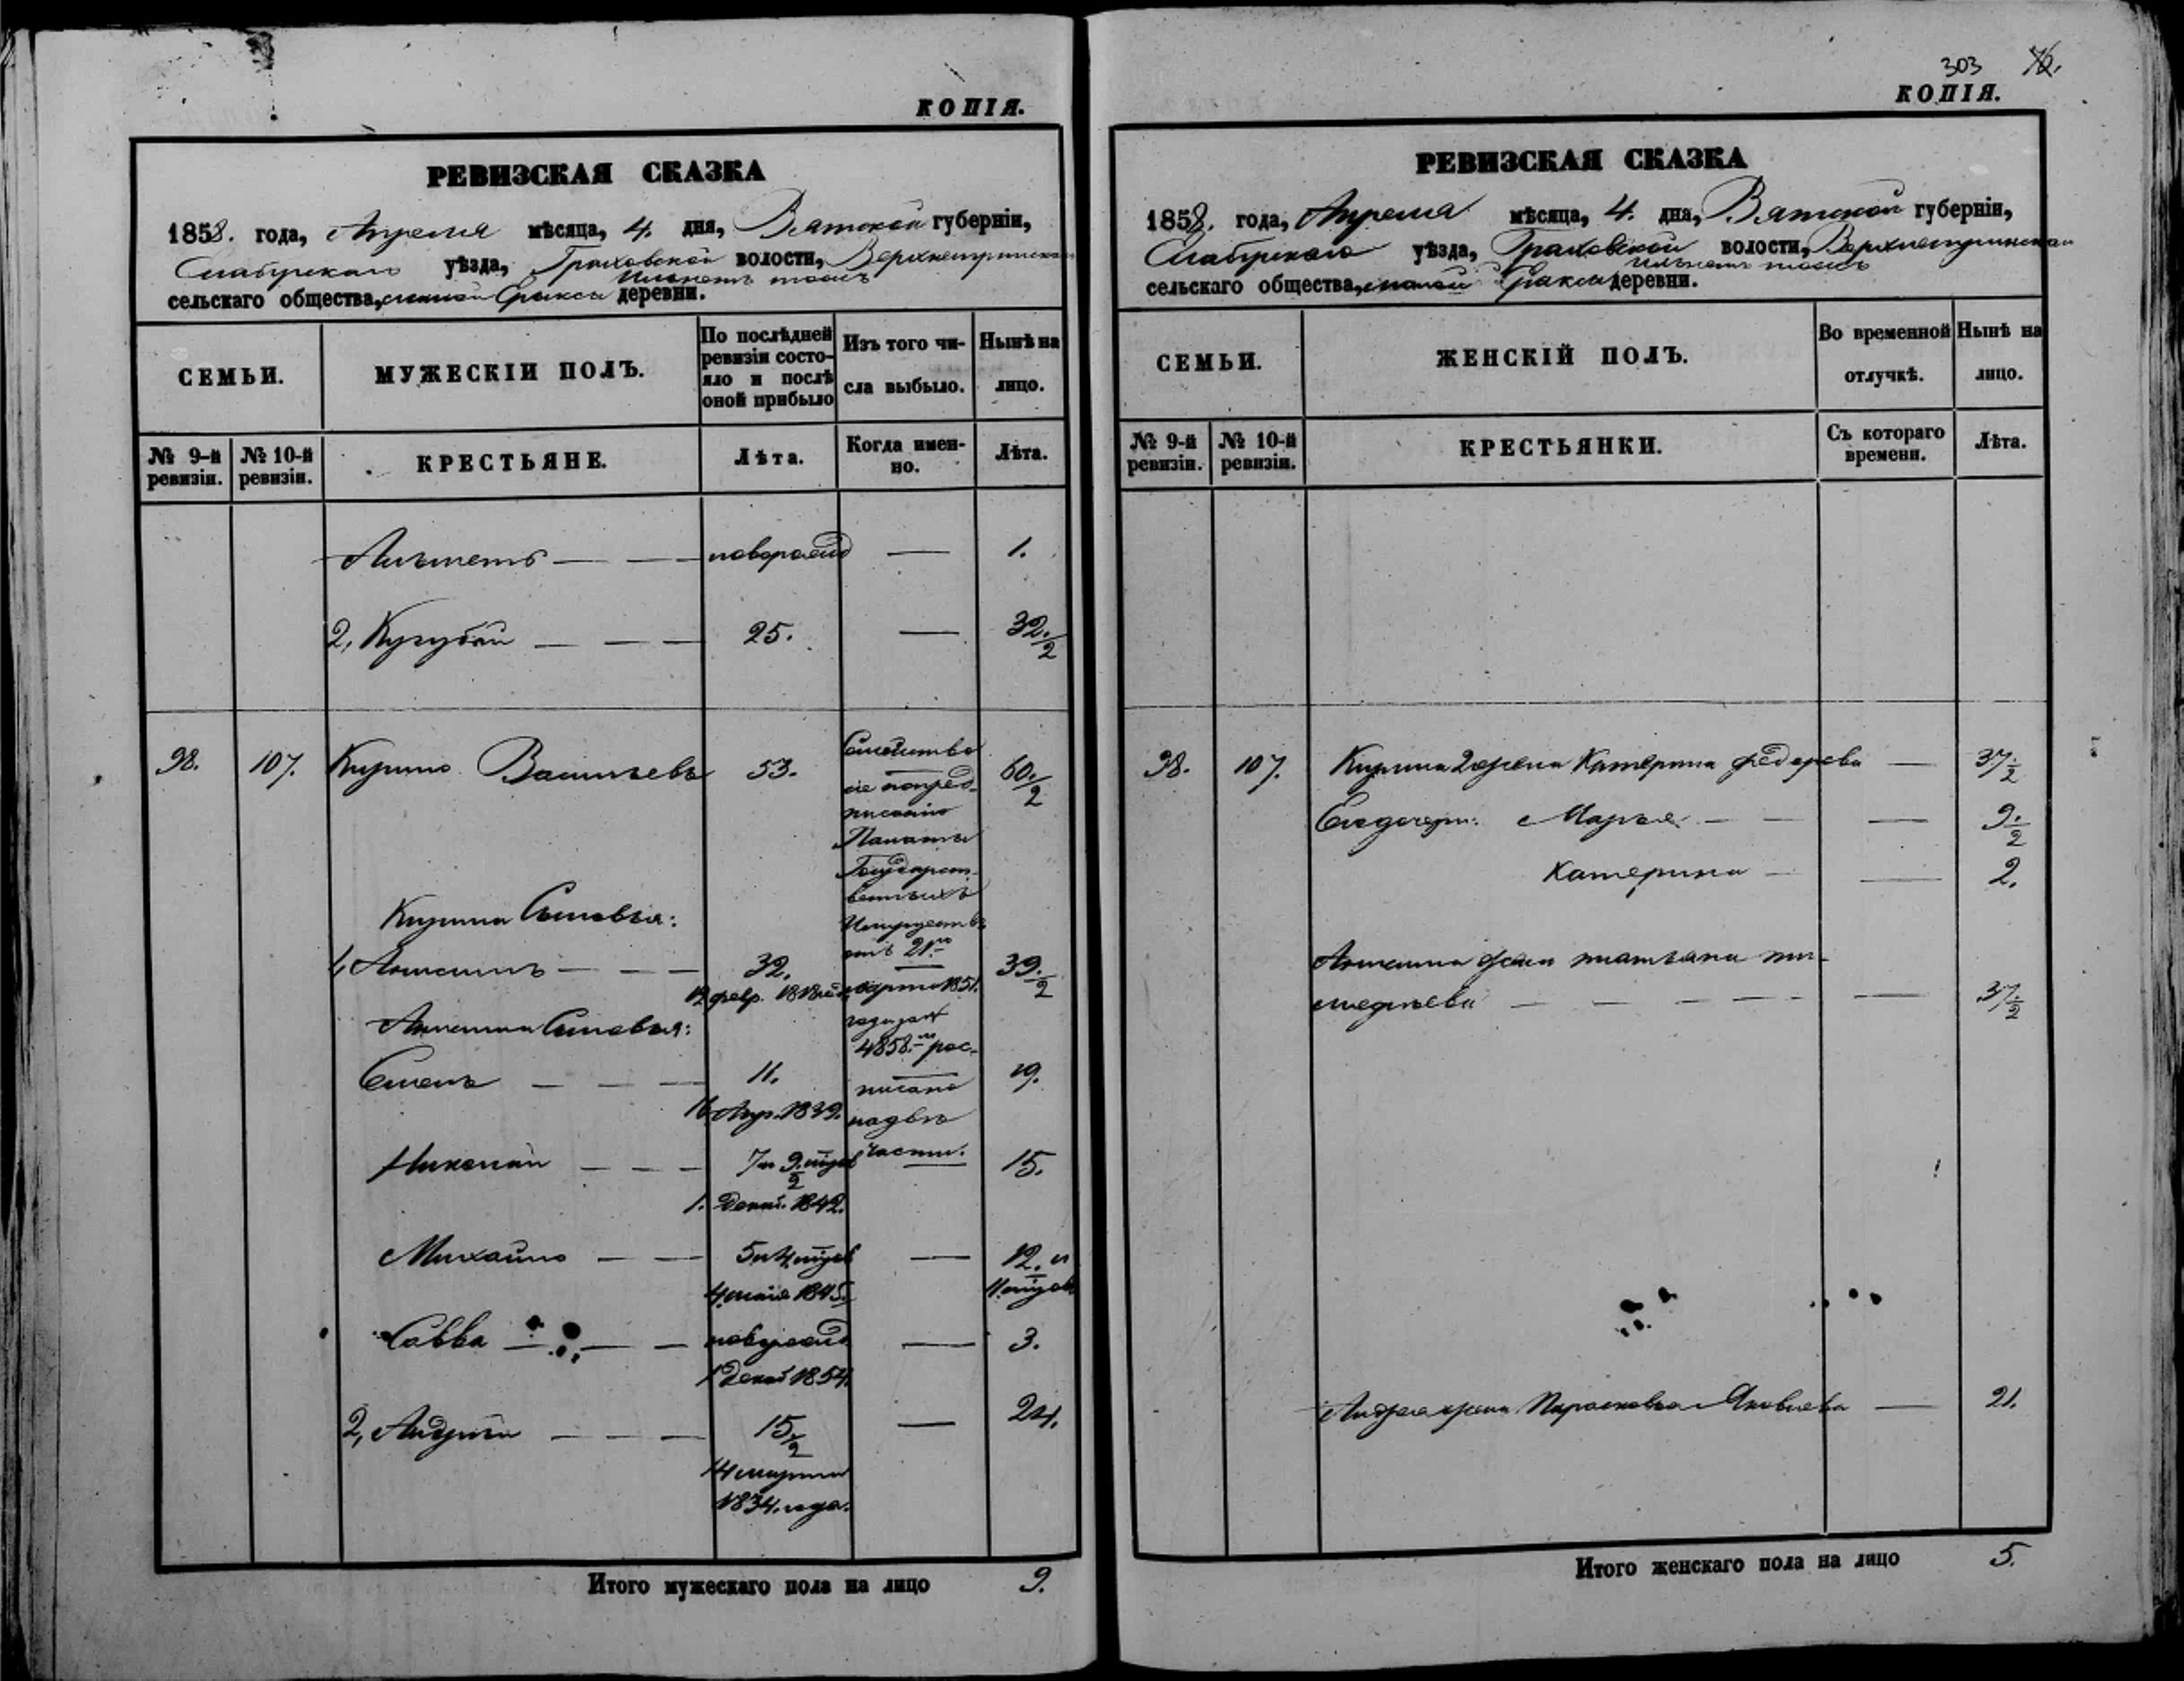 КОПІЯ.
РЕВИЗСКАЯ СКАЗКА
1858. года, Апреля мѣсяца, 4. дня, Вятской губерніи,
Елабугскаго уѣзда, Граховской волости,
сельскаго общества, деревни.
СЕМЬИ.
МУЖЕСКІЙ ПОЛЪ.
По послѣдней ревизіи состояло и послѣ оной прибыло
Изъ того числа выбыло.
Нынѣ на лицо.
№ 9-й ревизіи.
№ 10-й ревизіи.
КРЕСТЬЯНЕ.
Лѣта.
Когда именно.
Лѣта.
новорожд — 1.
2, Кугубай — — — 25. — 32./2
98. 107. Кирило Васильевъ 53. 60./2
Семейство
сіе по пред-
писанію
Палаты
Государст-
венныхъ
Имуществъ
отъ 21.го
марта 1851.
года за №
4858.мъ рос-
писано
на двѣ
части.
Кирила Сыновья:
1, Анисимъ — — — 32. 39./2
12 февр. 1818
Анисима Сыновья:
Семенъ — — — 11. 19.
16 Апр. 1839.
Николай — — — 7 и 9./2 мѣсяц 15.
1. Декаб. 1842.
Михайло — — 5 и 4 мѣсяц — 12. и
11 мѣсяц
4 мая 1845
Савва — — — новорожд — 3.
1 декаб 1854.
2, Андрей — — — 15/2 — 24.
14 марта
1834. года.
Итого мужескаго пола на лицо 9.
303 76.
КОПІЯ.
РЕВИЗСКАЯ СКАЗКА
1858. года, Апреля мѣсяца, 4. дня, Вятской губерніи,
Елабугскаго уѣзда, Граховской волости,
сельскаго общества, деревни.
СЕМЬИ.
ЖЕНСКІЙ ПОЛЪ.
Во временной отлучкѣ.
Нынѣ на лицо.
№ 9-й ревизіи.
№ 10-й ревизіи.
КРЕСТЬЯНКИ.
Съ котораго времени.
Лѣта.
98. 107. Кирила 2 жена Катерина Федорова — 37./2
Его дочери: Марья — — — 9./2
Катерина — — 2.
Анисима жена Татьяна Ти-
мофеева — — — — — — 37/2
Андрея жена Парасковья Яковлева — 21.
Итого женскаго пола на лицо 5.